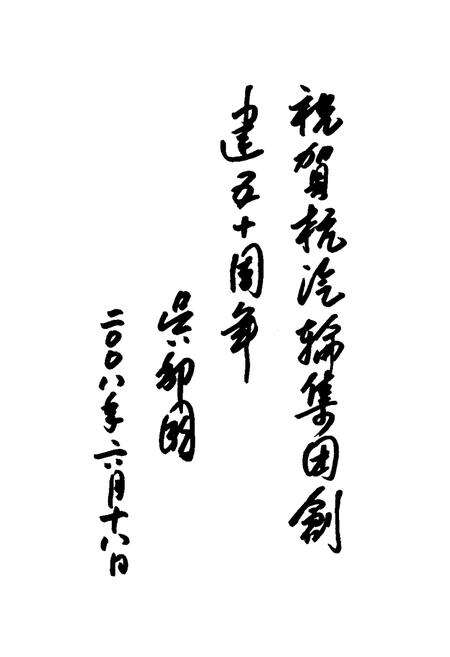 祝賀杭汽輪集团創
建五十周年
吴邦国
二〇〇八年六月十八日